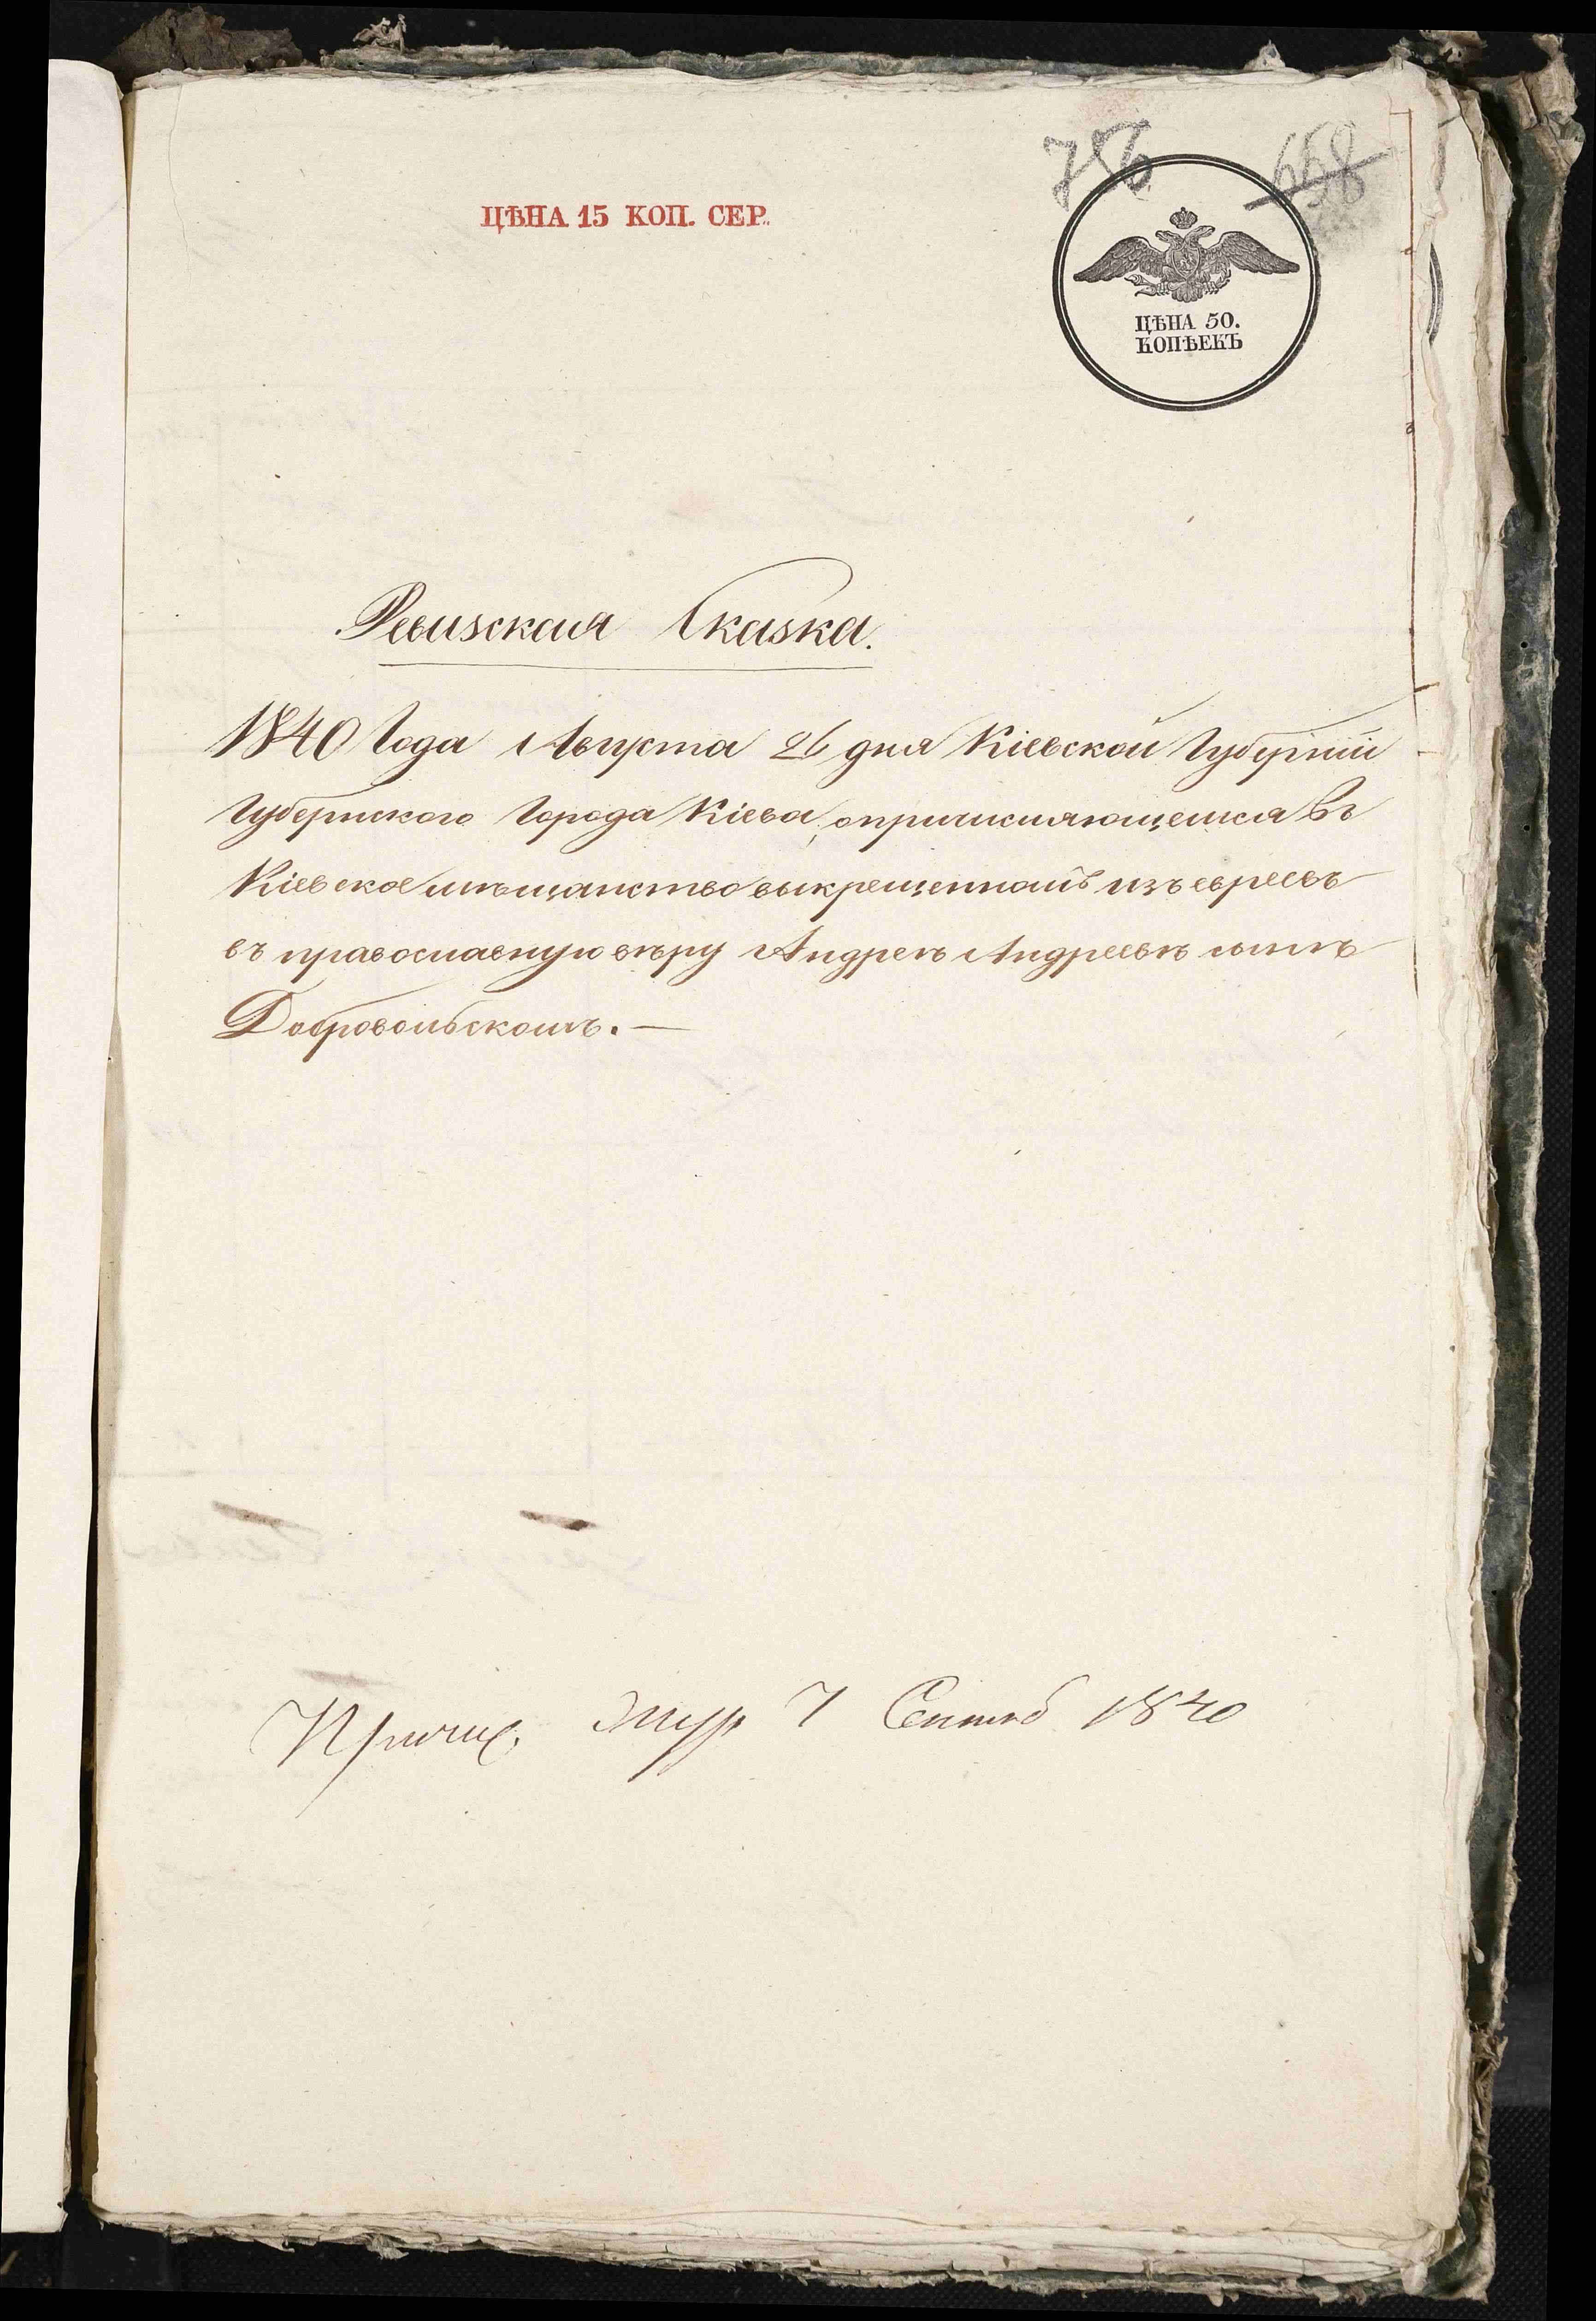 756
658
ЦѢНА 15 КОП. СЕР.
ЦѢНА 50.
КОПѢЕКЪ
Ревизская Сказка.
1840 Года Августа 26 дня Кіевской Губерніи
Губернского Города Кіева, опричисляющемся въ
Кіевское мѣщанство выкрещенномъ изъ евреевъ
въ православную вѣру Андреѣ Андреевѣ сынѣ
Добровольскомъ. —
Причис. жур 7 Сентяб 1840